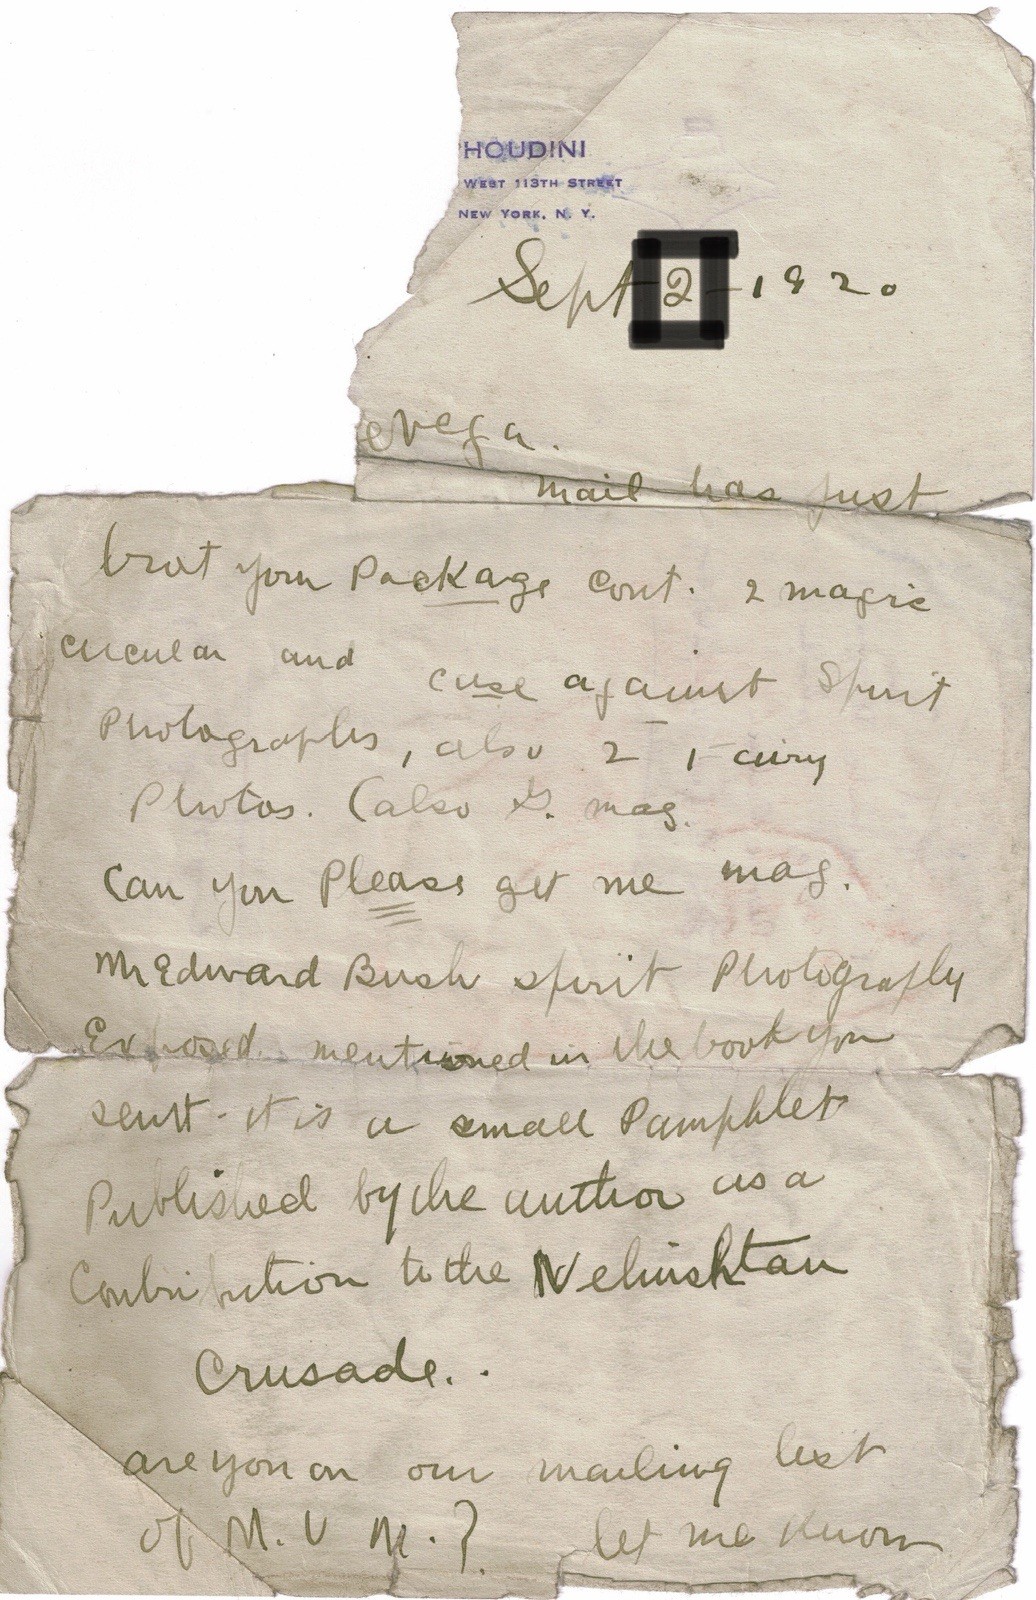 HOUDINI
WEST 113TH STREET
NEW YORK, N. Y.
Sept 2-1920
evega.
mail has just
brot your Package cont. 2 magic
circular and case against Spirit
Photographs, also 2 Fairy
Photos. (also G. mag.
Can you Please get me mag.
Mr Edward Bush spirit Photography
Exposed mentioned in the book you
sent - it is a small Pamphlet
Published by the author as a
Contribution to the Nehushtan
Crusade..
are you on our mailing list
of M. U M.? let me know